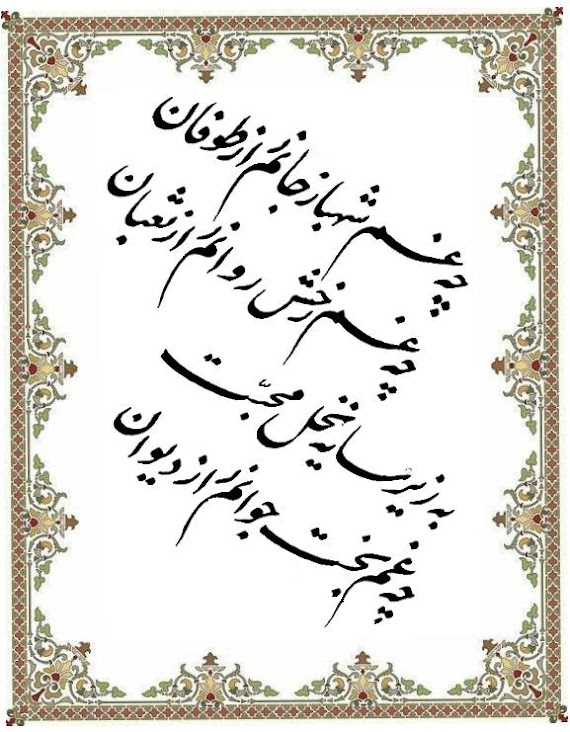 چه غم شهباز جانم از طوفان
چه غم رخش روانم از ثعبان
به زیر سایه نخل محبّت
چه غم بخت جوانم از دیوان